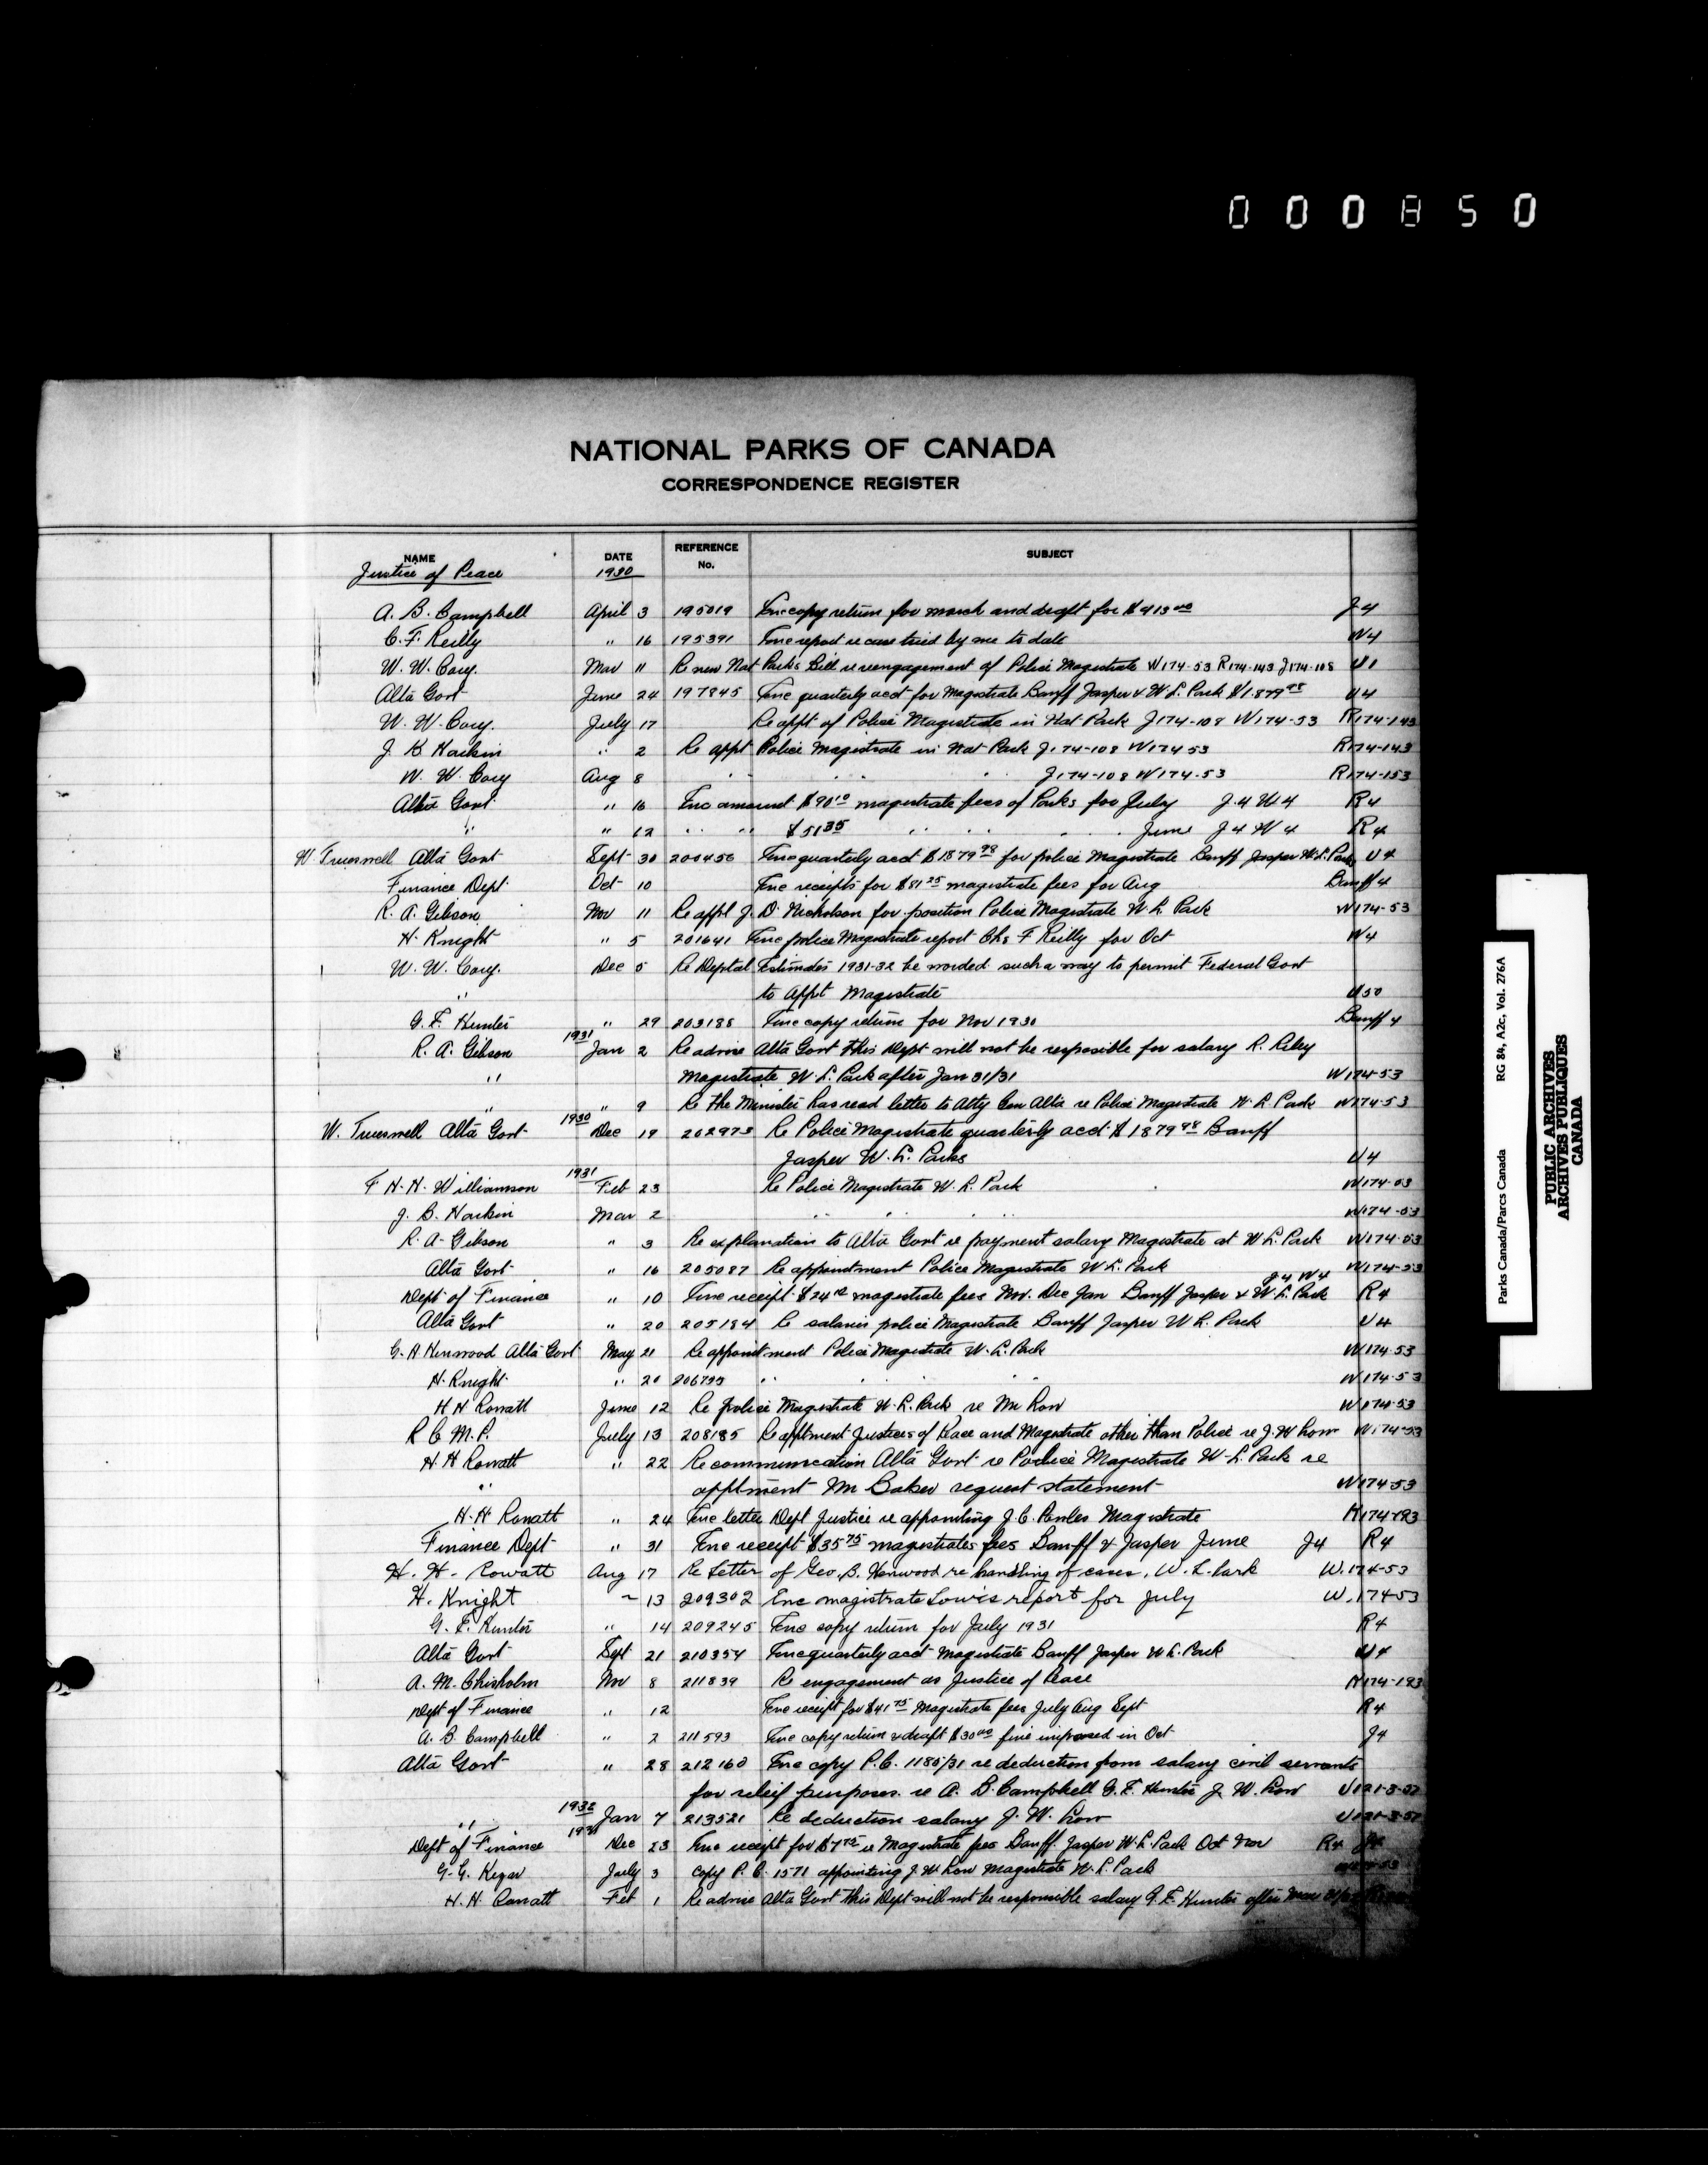 000850
NATIONAL PARKS OF CANADA
CORRESPONDENCE REGISTER
NAME DATE REFERENCE No. SUBJECT
Justice of Peace 1930
A. B. Campbell April 3 195019 Enc copy return for march and draft for $413.00 J4
C. F. Reilly " 16 195391 Enc report re case tried by me to date W4
W. W. Cory. Mar 11 Re new Nat Parks Bill re reengagement of Police Magistrate W174-53 R174-143 J174-108 U1
Alta Govt June 24 197845 Enc quarterly acct for Magistrate Banff Jasper & W. L. Park $1,879.98 U4
W. W. Cory. July 17 Re appt of Police Magistrate in Nat Park J174-108 W174-53 R174-143
J. B Harkin " 2 Re appt Police Magistrate in Nat Park J174-108 W174 53 R174-143
W. W. Cory Aug 8 " " " " J174-108 W174-53 R174-153
Alta Govt " 16 Enc amount $90.10 magistrate fees of Parks for July J.4 W4 R4
" " 12 " " $51.35 " " " June J4 W4 R4
W. Trueswell Alta Govt Sept 30 200456 Enc quarterly acct $1879.98 for police Magistrate Banff Jasper W. L. Park U4
Finance Dept. Oct 10 Enc receipts for $81.25 magistrate fees for Aug Banff 4
R. A. Gibson Nov 11 Re appl J. D. Nicholson for position Police Magistrate W L Park W174-53
H. Knight " 5 201641 Enc police Magistrate report Chs F Reilly for Oct W4
W. W. Cory. Dec 5 Re Deptal Estimates 1931-32 be worded such a way to permit Federal Govt
" to Appt Magistrate U50
G. E. Hunter " 29 203188 Enc copy return for Nov 1930 Banff 4
R. A. Gibson 1931 Jan 2 Re advise Alta Govt this Dept will not be resposible for salary R. Riley
" Magistrate W. L. Park after Jan 31/31 W174-53
" " 9 Re the Minister has read letter to Atty Gen Alta re Police Magistrate W. L. Park W174-53
W. Trueswell Alta Govt 1930 Dec 19 202973 Re Police Magistrate quarterly acct $1879.98 Banff
Jasper W. L. Parks U4
F. H. H. Williamson 1931 Feb 23 Re Police Magistrate W. L. Park W174-53
J. B. Harkin Mar 2 " " " " W174-53
R. A. Gibson " 3 Re explanation to Alta Govt re payment salary Magistrate at W L. Park W174-53
Alta Govt " 16 205087 Re appointment Police Magistrate W. L. Park W174-53
J4 W4
Dept of Finance " 10 Enc receipt $24 magistrate fees Nov. Dec Jan Banff Jasper & W. L. Park R4
Alta Govt " 20 205184 Re salaries police Magistrate Banff Jasper W L. Park U4
G. H Henwood Alta Govt May 21 Re appointment Police Magistrate W. L. Park W174-53
H. Knight " 20 206799 " " " " W174-53
H H Rowatt June 12 Re police Magistrate W. L. Park re Mr Low W174-53
R C M. P. July 13 208185 Re apptment Justices of Peace and Magistrate other than Police re J. W Low W174-53
H. H Rowatt " 22 Re communication Alta Govt re Police Magistrate W. L. Park re
" apptment Mr Baker request statement W174-53
H. H Rowatt " 24 Enc letter Dept Justice re appointing J. C. Magistrate R174-193
Finance Dept " 31 Enc receipt $35.75 magistrates fees Banff & Jasper June J4 R4
H. H. Rowatt Aug 17 Re Letter of Geo. B. Henwood re handling of cases, W. L. Park W.174-53
H. Knight " 13 209302 Enc magistrate Low's report for July W.174-53
G. E. Hunter " 14 209245 Enc copy return for July 1931 R4
Alta Govt Sept 21 210354 Enc quarterly acct Magistrate Banff Jasper W L. Park U4
A. M. Chisholm Nov 8 211839 Re engagement as Justice of Peace R174-193
Dept of Finance " 12 Enc receipt for $41.75 Magistrate fees July Aug Sept R4
A. B. Campbell " 2 211593 Enc copy return & draft $30.00 fine imposed in Oct J4
Alta Govt " 28 212160 Enc copy P.C. 1185/31 re deduction from salary civil servants
for relief purposes. re A. B. Campbell G. E. Hunter J. W. Low U121-3-57
" 1932 Jan 7 213521 Re deduction salary J. W. Low U121-3-57
Dept of Finance 1931 Dec 23 Enc receipt for $7.75 re Magistrate fees Banff. Jasper W. L. Park Oct Nov R4 J4
G. G. July 3 Copy P. C. 1571 appointing J. W Low Magistrate W. L. Park
H. H. Rowatt Feb 1 Re advise Alta Govt this Dept will not be responsible salary G. E. Hunter after Mar
Parks Canada/Parcs Canada RG 84, A2c, Vol. 276A
PUBLIC ARCHIVES
ARCHIVES PUBLIQUES
CANADA